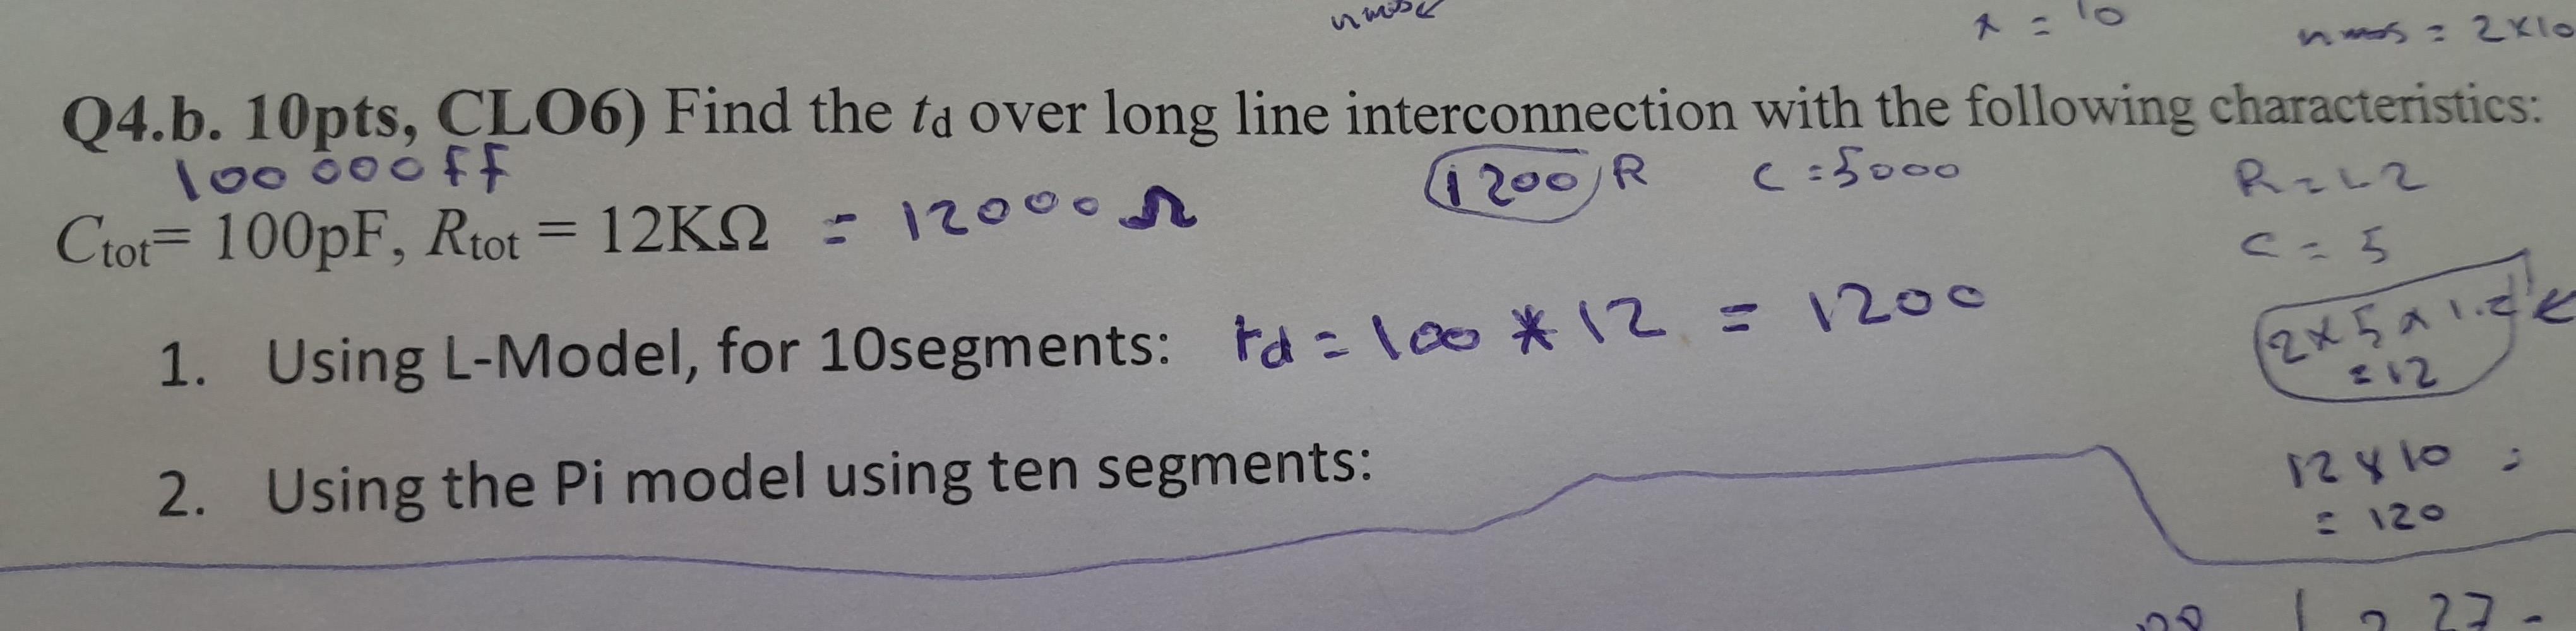 nmos
x = 10
nmos = 2x10
Q4.b. 10pts, CLO6) Find the td over long line interconnection with the following characteristics:
100 000 fF
1200 R C = 5000
R = 1.2
Ctot= 100pF, Rtot = 12KΩ = 12000 Ω
C = 5
1. Using L-Model, for 10segments: td = 100 * 12 = 1200
2 x 5 x 1.2
= 12
2. Using the Pi model using ten segments:
12 x 10
= 120